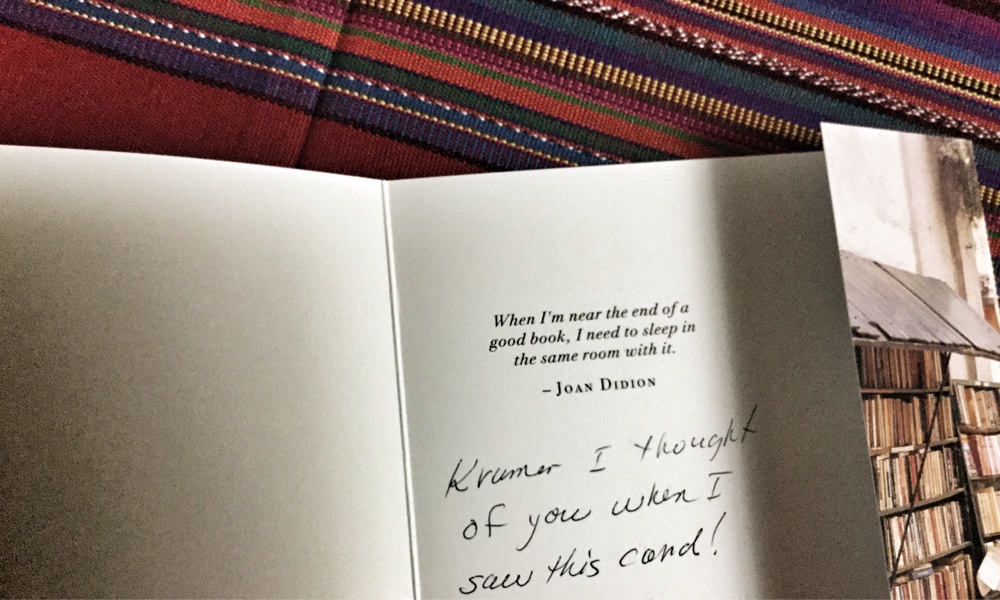 When I'm near the end of a
good book, I need to sleep in
the same room with it.
– JOAN DIDION
Kramer I thought
of you when I
saw this card!